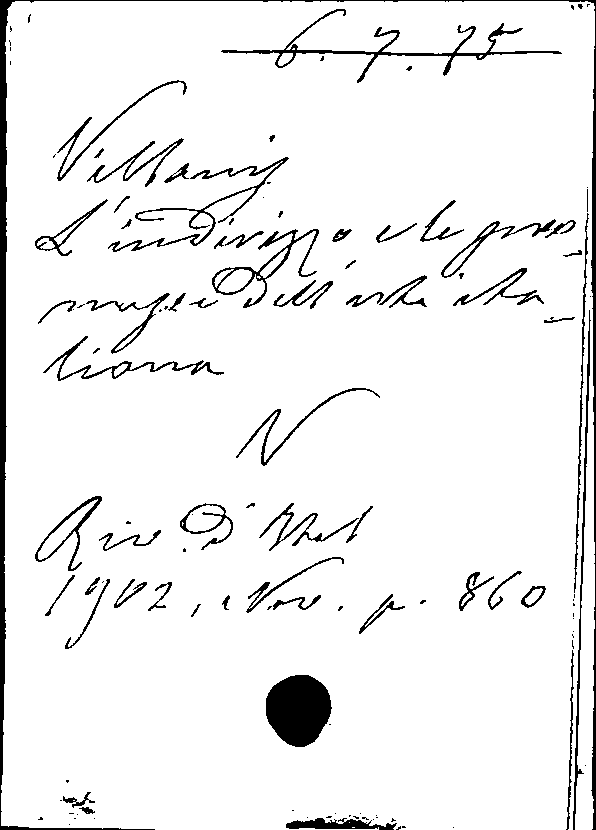 6. 7. 75
Villani
L'indirizzo e le pro-
messe dell'arte ita-
liana
N
Riv. d'Ital
1902, Nov. p. 860